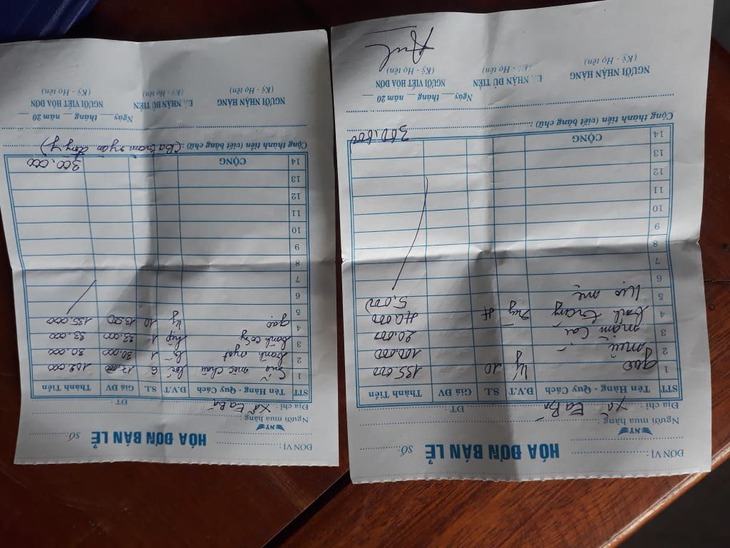 ĐƠN VỊ:
HÓA ĐƠN BÁN LẺ Số:
Người mua hàng:
Địa chỉ: Xã Ea Bá ĐT:
STT Tên Hàng - Quy Cách Đ.V.T S.L Giá ĐV Thành Tiền
1 gạo ký 10 135.000
2 100.000
3 mắm Cái 20.000
4 bánh tráng 40.000
5 kẹo mè 5.000
6
7
8
9
10
11
12
13
14 CỘNG 300.000
Cộng thành tiền (viết bằng chữ):
Ngày tháng năm 20
NGƯỜI NHẬN HÀNG Đ. NHẬN ĐỦ TIỀN NGƯỜI VIẾT HÓA ĐƠN
(Ký - Họ tên) (Ký - Họ tên) (Ký - Họ tên)
ĐƠN VỊ:
HÓA ĐƠN BÁN LẺ Số:
Người mua hàng:
Địa chỉ: Xã Ea Bá ĐT:
STT Tên Hàng - Quy Cách Đ.V.T S.L Giá ĐV Thành Tiền
1 chai lốc 6 17.000 102.000
2 bánh ngọt 1 30.000 30.000
3 bánh hộp 1 33.000 33.000
4 gạo ký 10 13.500 135.000
5
6
7
8
9
10
11
12
13
14 CỘNG 300.000
Cộng thành tiền (viết bằng chữ): (Ba trăm ngàn đồng)
Ngày tháng năm 20
NGƯỜI NHẬN HÀNG Đ. NHẬN ĐỦ TIỀN NGƯỜI VIẾT HÓA ĐƠN
(Ký - Họ tên) (Ký - Họ tên) (Ký - Họ tên)